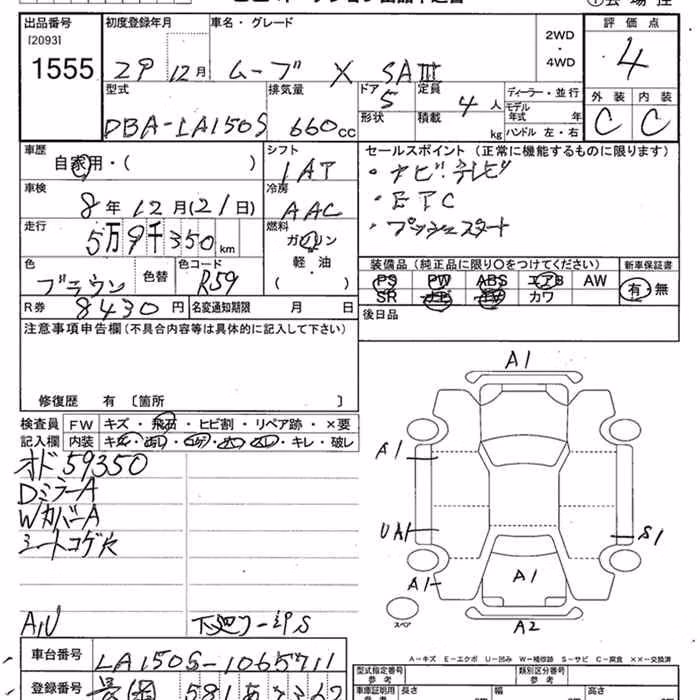 出品番号 初度登録年月 車名・グレード 評価点
[2093] 2WD
1555 29 12月 ムーブ X SAⅢ ・ 4
4WD
型式 排気量 ドア 定員 ディーラー・並行 外装 内装
5 4人 モデル年式 年
DBA-LA150S 660cc 形状 積載 kg ハンドル 左・右 C C
車歴 シフト セールスポイント (正常に機能するものに限ります)
自家用・( ) IAT ・ナビ・テレビ
車検 冷房 ・ETC
8年12月(21日) AAC ・プッシュスタート
走行 燃料
5万9千350km ガソリン
軽・油
( )
色 色替 色コード 装備品(純正品に限り○をつけてください) 新車保証書
ブラウン R59 PS PW ABS エアB AW 有・無
SR ナビ TV カワ
R券 8430円 名変通知期限 月 日 後日品
注意事項申告欄(不具合内容等は具体的に記入して下さい)
修復歴 有〔箇所 〕
検査員 FW キズ・飛石・ヒビ割・リペア跡・×要
記入欄 内装 キレ・破レ
オド59350
Dミラー A
Wカバー A
シートコゲ穴
下廻りーS
A1
A1
UA1
A1
S1
A1
A2
スペア
A-キズ E-エクボ U-凹み W-補修跡 S-サビ C-腐食 ××-交換済
車台番号 LA150S-1065711
型式指定番号 参考 類別区分番号 参考
登録番号 581 あ
車庫証明用 長さ 幅 高さ